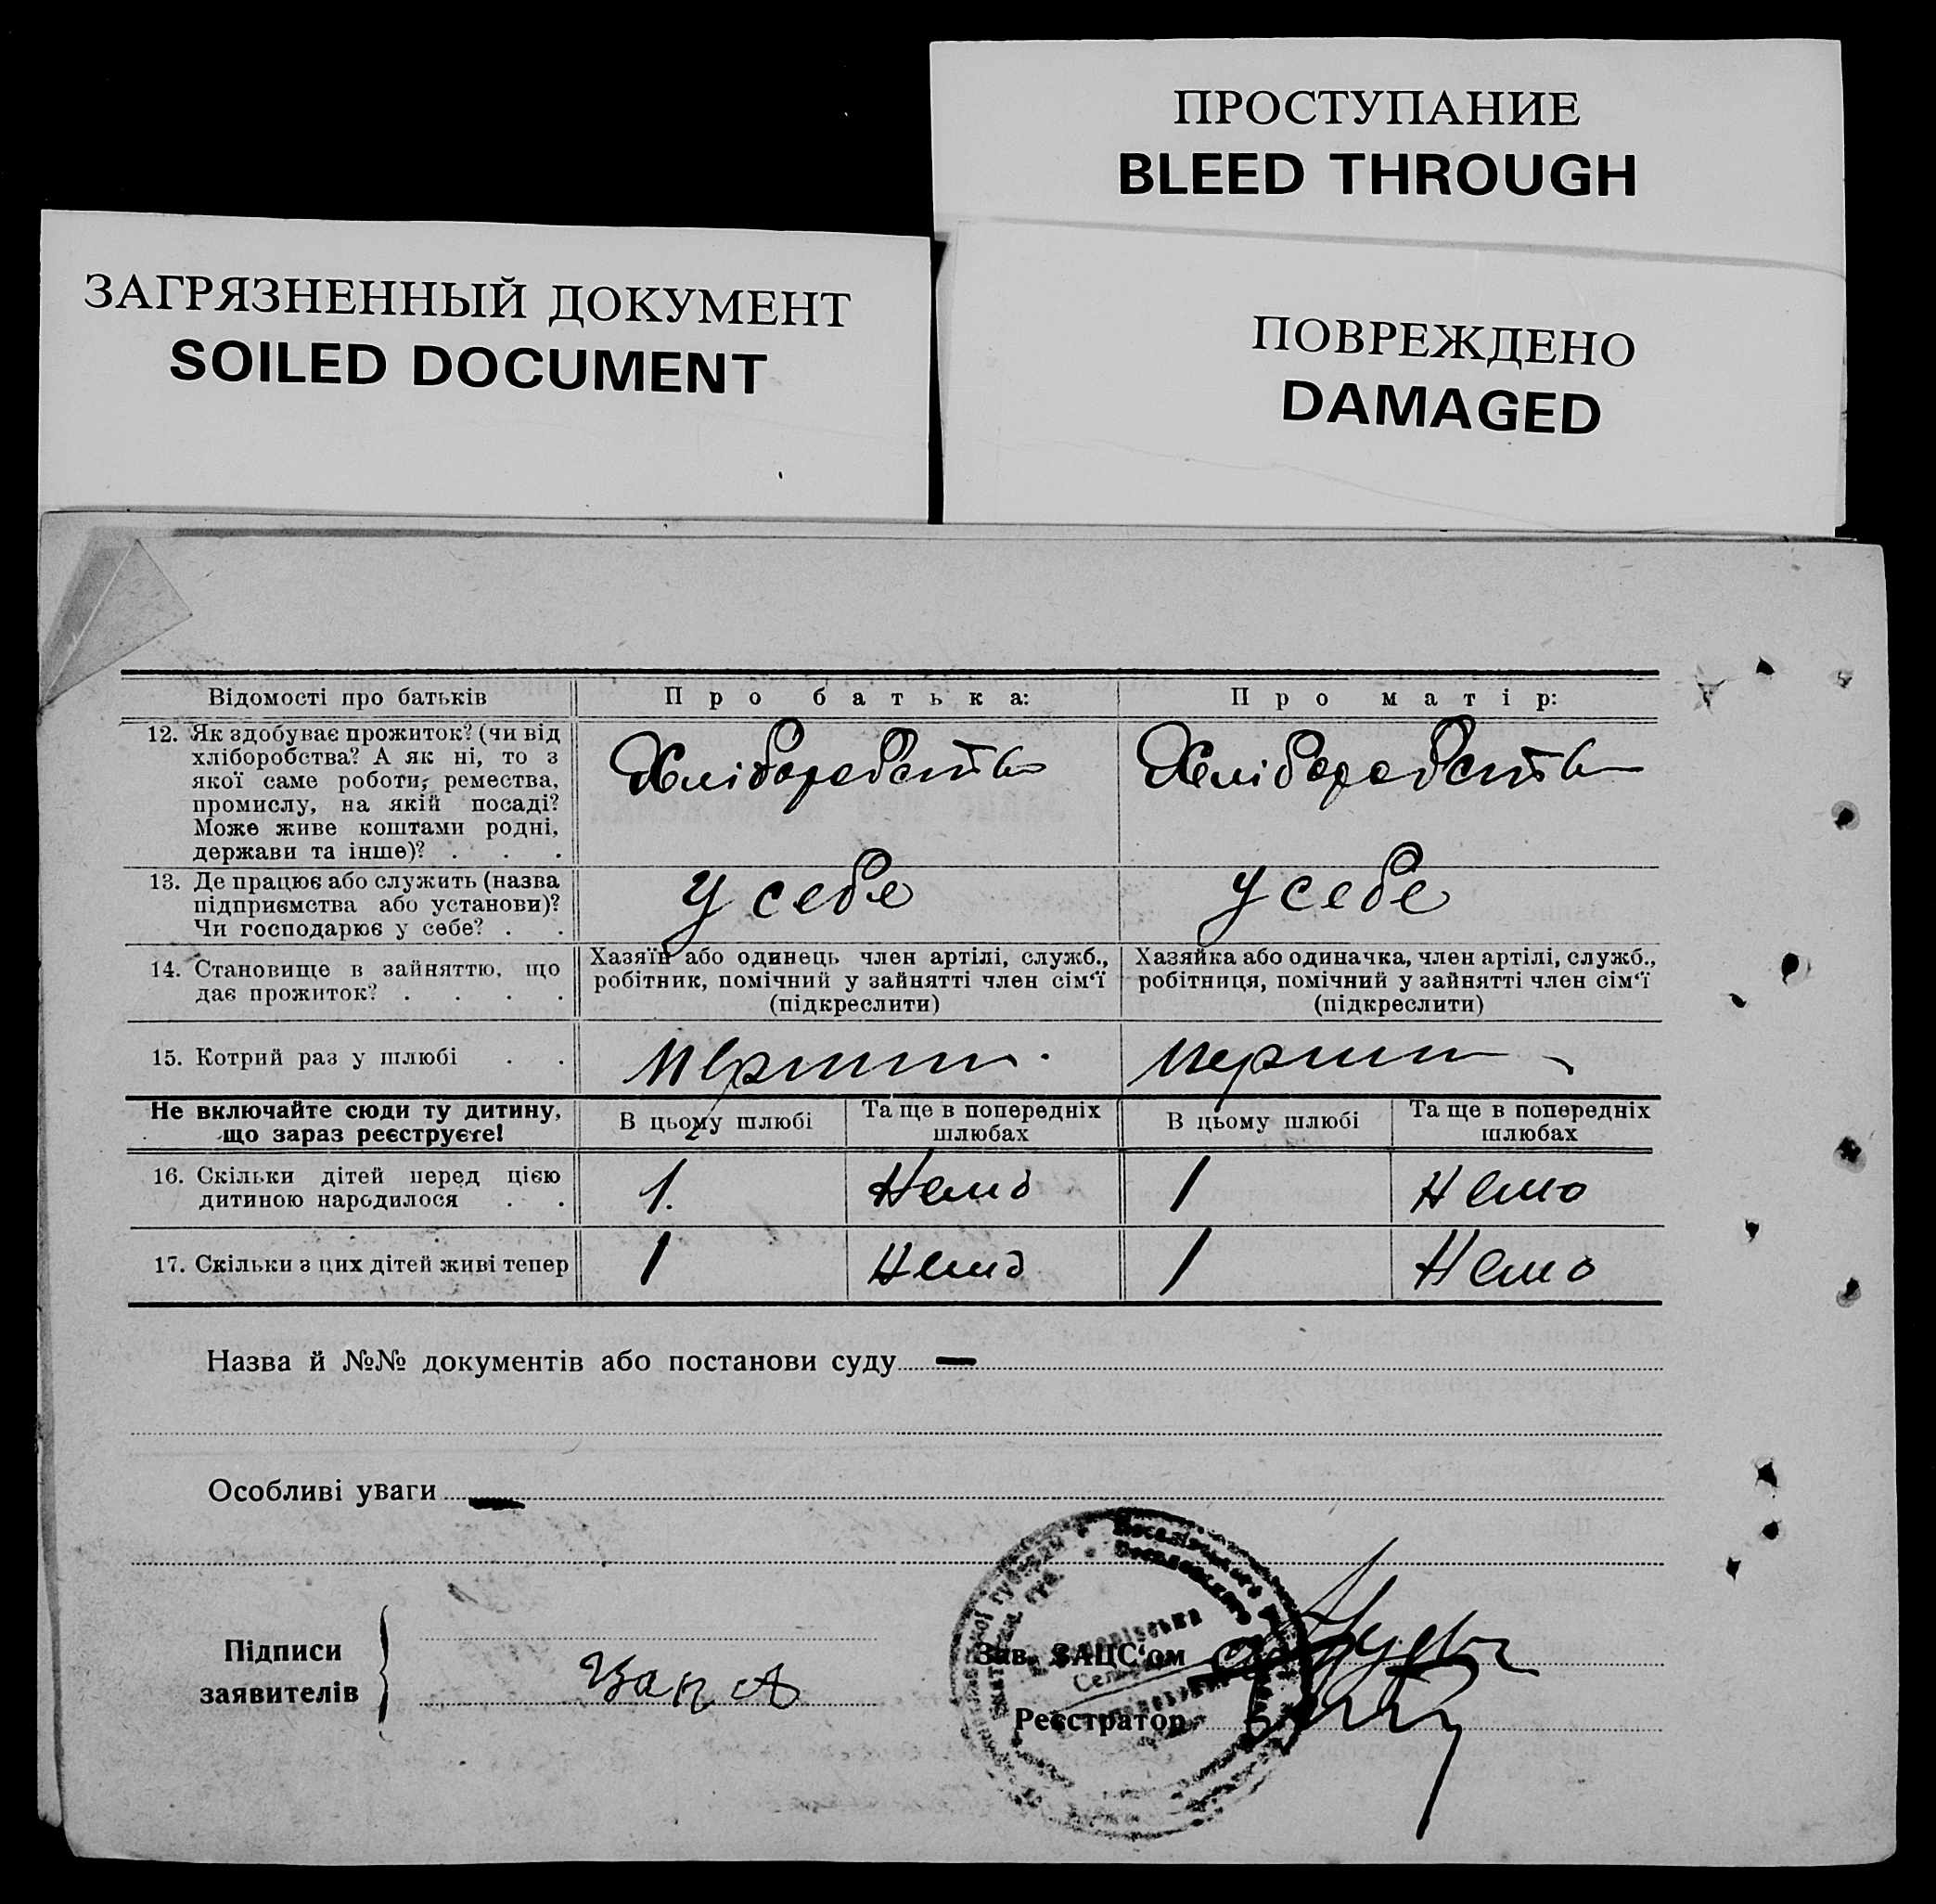 ПРОСТУПАНИЕ
BLEED THROUGH
ЗАГРЯЗНЕННЫЙ ДОКУМЕНТ
SOILED DOCUMENT
ПОВРЕЖДЕНО
DAMAGED
Відомості про батьків Про батька: Про матір:
12. Як здобуває прожиток? (чи від
хліборобства? А як ні, то з
якої саме роботи, ремества,
промислу, на якій посаді?
Може живе коштами родні,
держави та інше)? . . .
Хліборобств Хліборобств
13. Де працює або служить (назва
підприємства або установи)?
Чи господарює у себе? . .
У себе У себе
14. Становище в зайняттю, що
дає прожиток? . . . .
Хазяїн або одинець член артілі, служб.,
робітник, помічний у зайнятті член сім‘ї
(підкреслити)
Хазяйка або одиначка, член артілі, служб.,
робітниця, помічний у зайнятті член сім‘ї
(підкреслити)
15. Котрий раз у шлюбі . . перший перший
Не включайте сюди ту дитину,
що зараз реєструєте!
В цьому шлюбі
Та ще в попередніх
шлюбах
В цьому шлюбі
Та ще в попередніх
шлюбах
16. Скільки дітей перед цією
дитиною народилося . .
1. Немо 1 Немо
17. Скільки з цих дітей живі тепер 1 Немо 1 Немо
Назва й №№ документів або постанови суду —
Особливі уваги —
Підписи
заявителів
Зав. ЗАЦС‘ом
Реєстратор